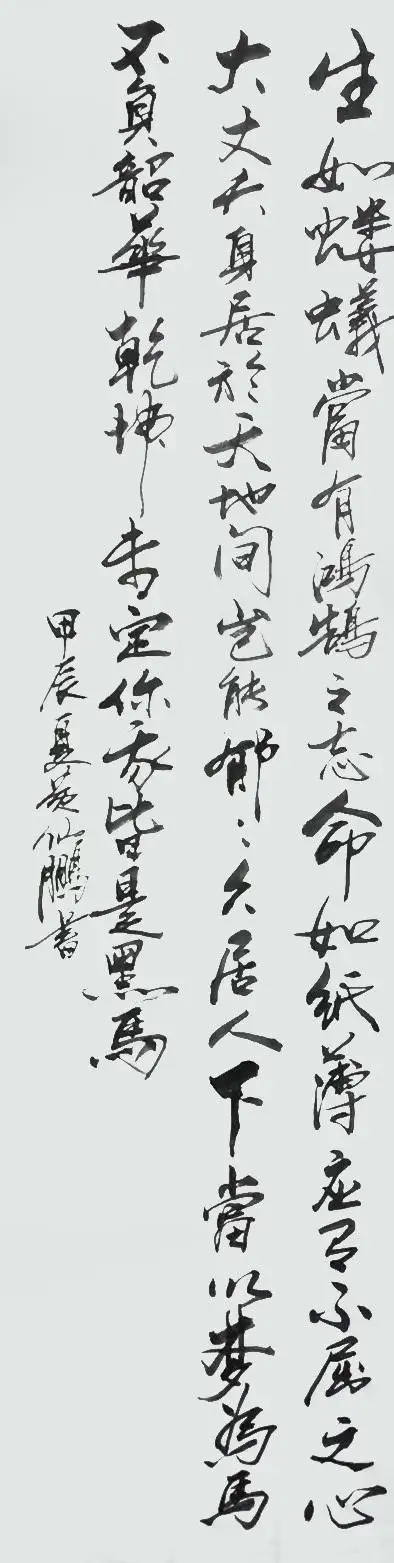 生如螻蟻當有鴻鵠之志命如紙薄应有不屈之心
大丈夫身居於天地间岂能郁〻久居人下當以夢為馬
不負韶華乾坤未定你我皆是黑馬
甲辰夏英仙鵬書